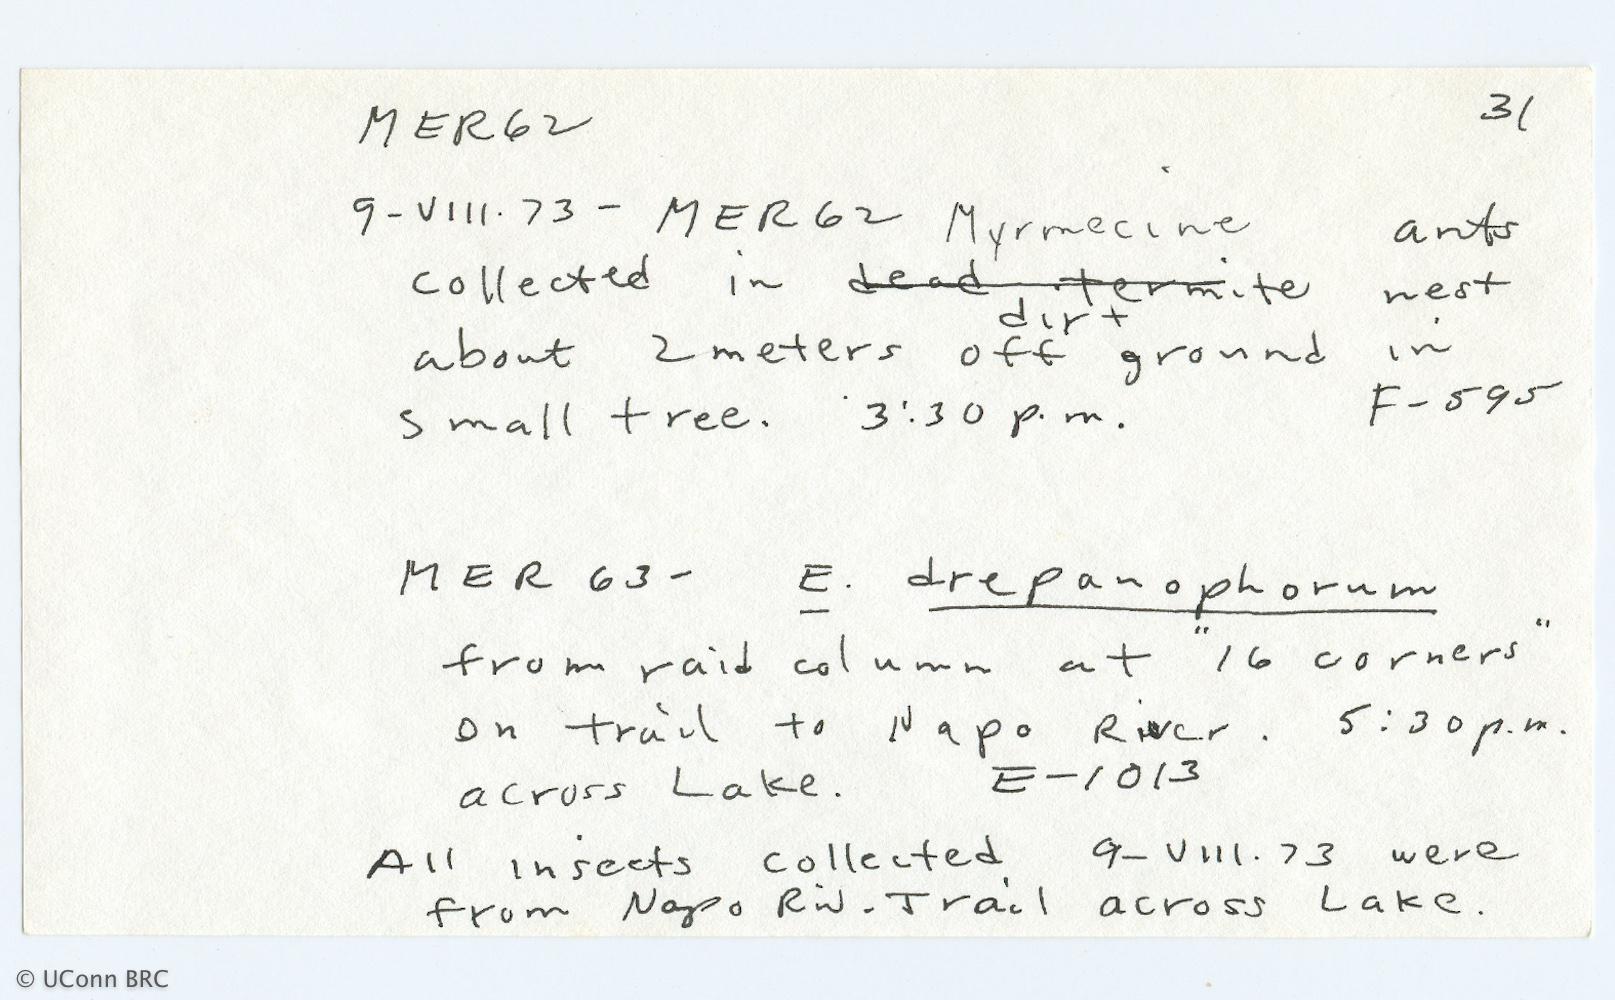 MER62
31
9-VIII.73 - MER62 Myrmecine ants
collected in dead termite nest
dirt
about 2 meters off ground in
small tree. 3:30 p.m. F-595
MER 63- E. drepanophorum
from raid column at "16 corners"
on trail to Napo River. 5:30 p.m.
across Lake. E-1013
All insects collected 9-VIII.73 were
from Napo Riv. Trail across Lake.
© UConn BRC